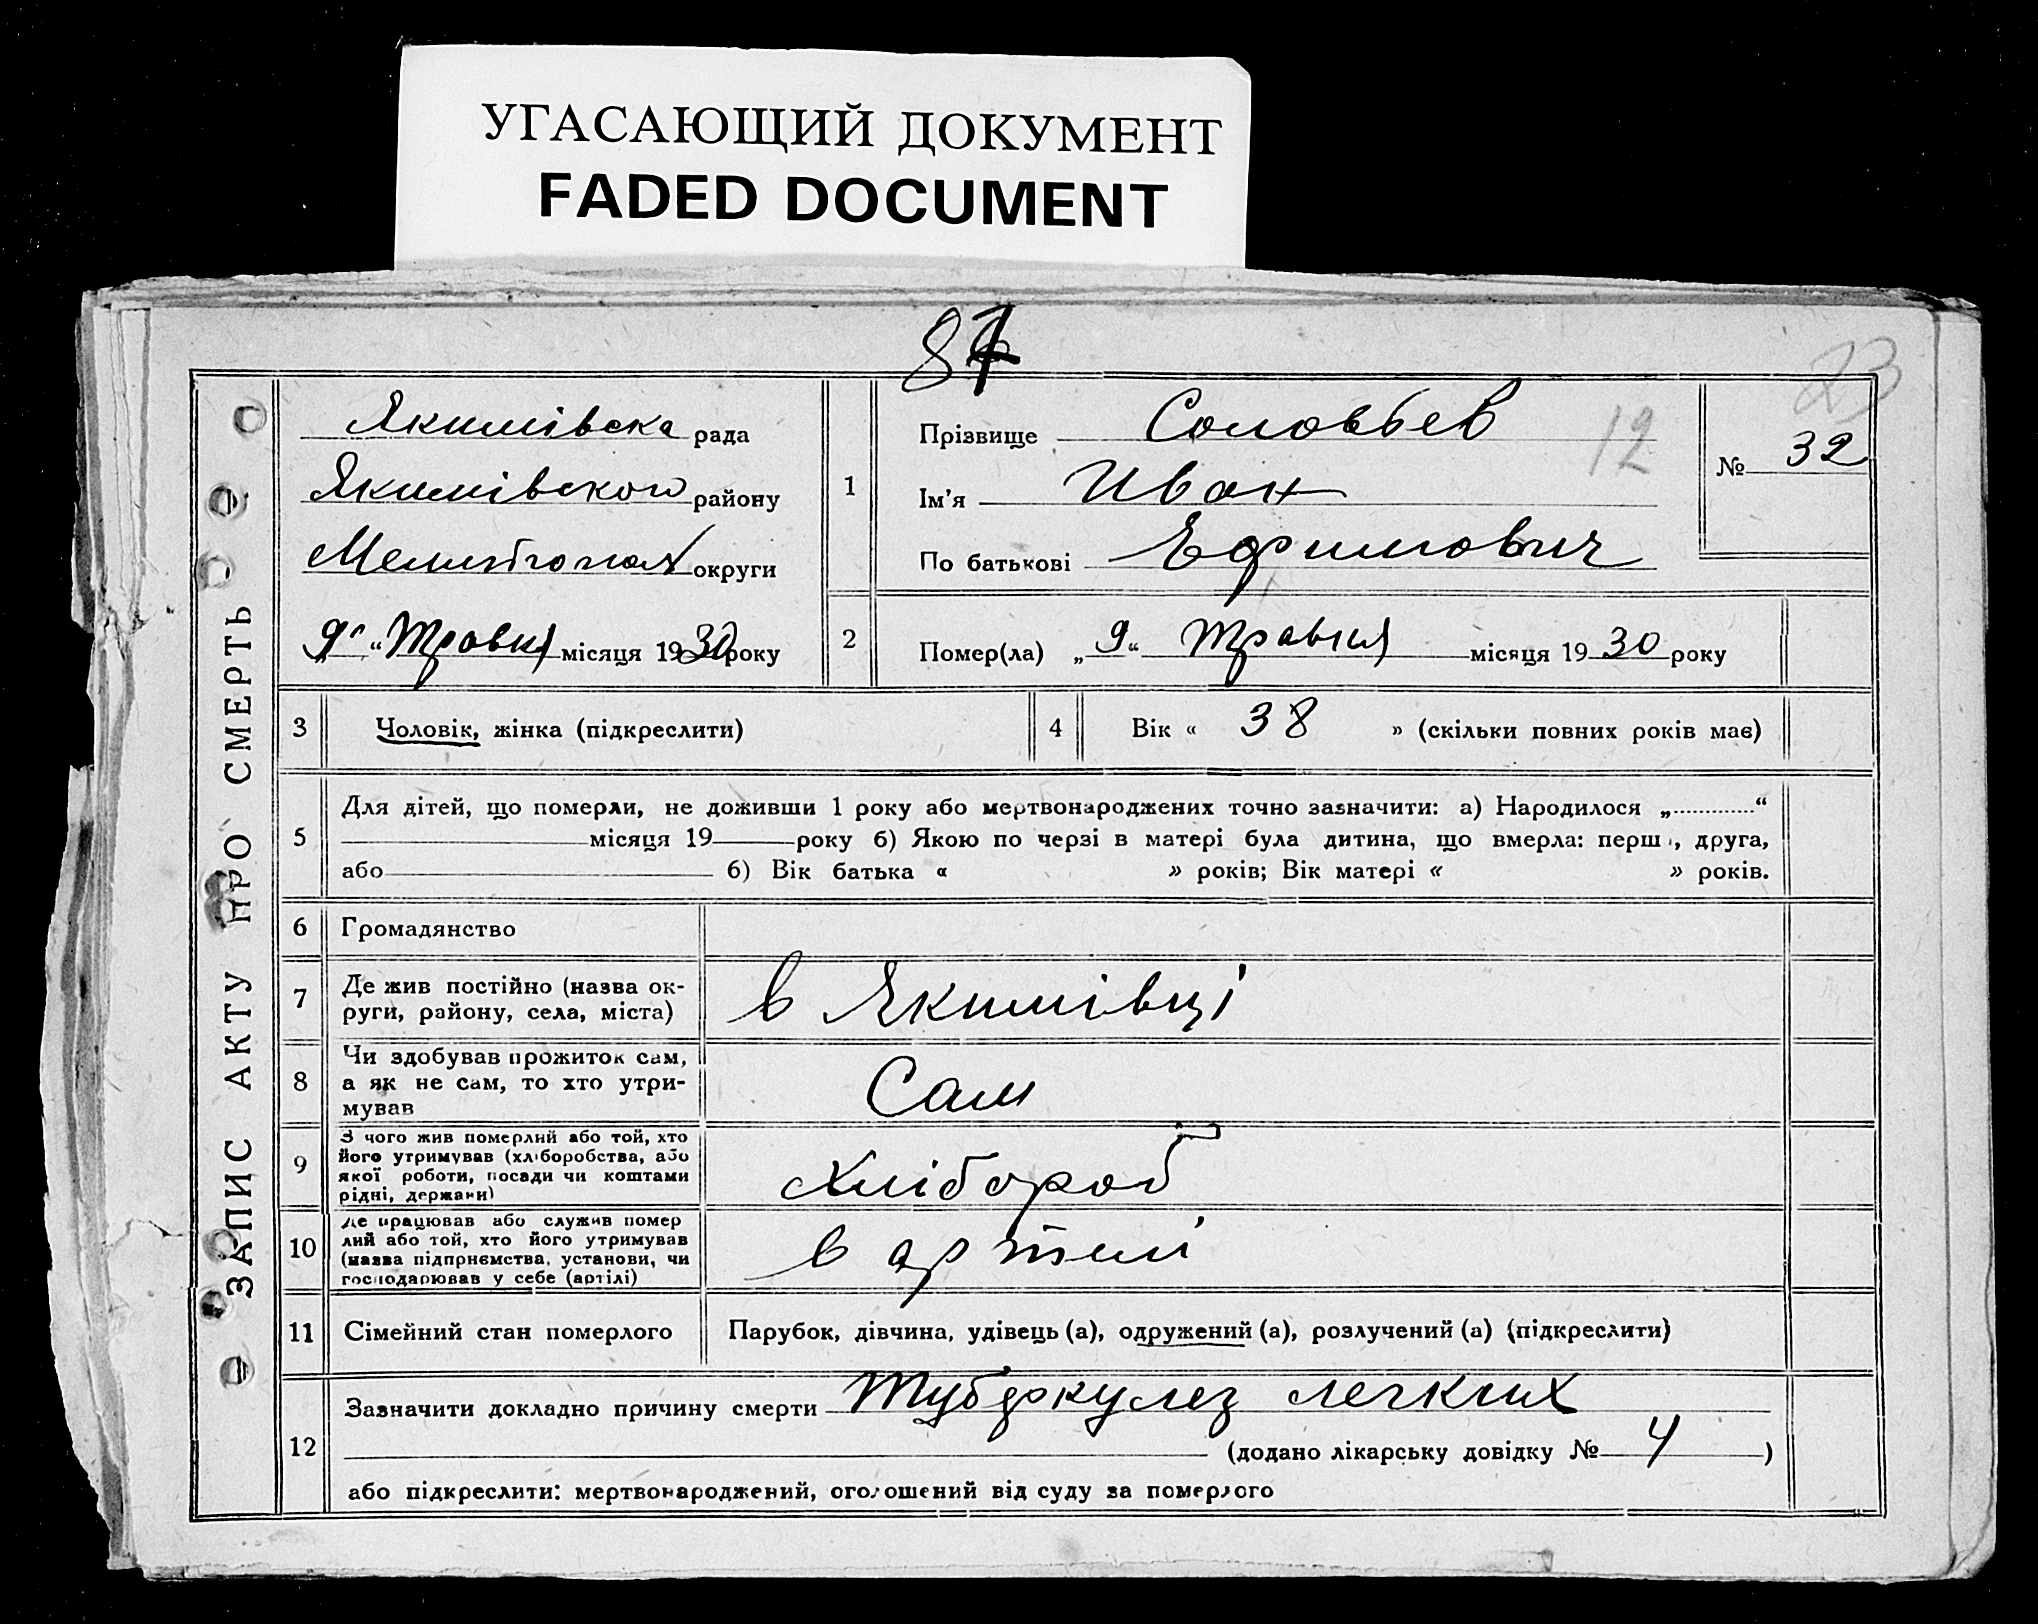 УГАСАЮЩИЙ ДОКУМЕНТ
FADED DOCUMENT
87
23
ЗАПИС АКТУ ПРО СМЕРТЬ
Якимівска рада
Якимівского району
Мелитопол округи
„9“ Травня місяця 1930 року
1
Прізвище Соловьев
12
Ім’я Иван
По батькові Ефимович
№ 32
2
Помер(ла) „9“ Травня місяця 1930 року
3 Чоловік, жінка (підкреслити)
4 Вік « 38 » (скільки повних років має)
5
Для дітей, що померли, не доживши 1 року або мертвонароджених точно зазначити: а) Народилося „ “
місяця 19 року б) Якою по черзі в матері була дитина, що вмерла: перша, друга,
або б) Вік батька « » років; Вік матері « » років.
6 Громадянство
7
Де жив постійно (назва ок-
руги, району, села, міста)
в Якимівці
8
Чи здобував прожиток сам,
а як не сам, то хто утри-
мував
Сам
9
З чого жив померлий або той, хто
його утримував (хліборобства, або
якої роботи, посади чи коштами
рідні, держави)
Хлібороб
10
Де працював або служив помер
лий або той, хто його утримував
(назва підприємства, установи, чи
господарював у себе (артілі)
в артилі
11 Сімейний стан померлого
Парубок, дівчина, удівець (а), одружений (а), розлучений (а) (підкреслити)
12
Зазначити докладно причину смерти Туберкулез легких
(додано лікарську довідку № 4 )
або підкреслити: мертвонароджений, оголошений від суду за померлого